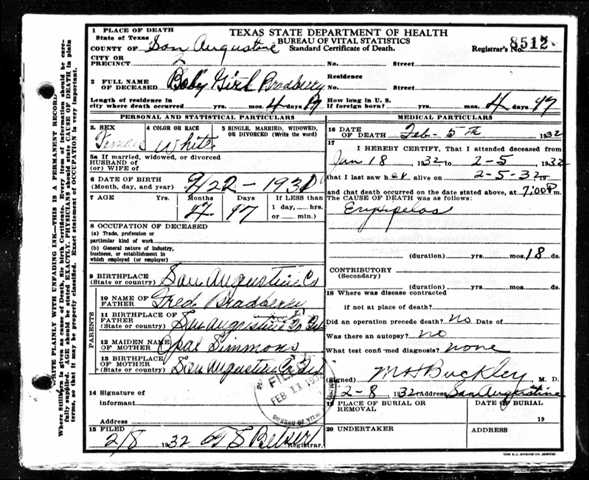 TEXAS STATE DEPARTMENT OF HEALTH
BUREAU OF VITAL STATISTICS
Standard Certificate of Death.
Registrar's No. 8512
1 PLACE OF DEATH
State of Texas
COUNTY OF San Augustine
CITY OR
PRECINCT No. Street
2 FULL NAME
OF DECEASED Baby Girl Bradberry Residence
No. Street
Length of residence in
city where death occurred yrs. mos. 4 ds. 17
How long in U. S.
if foreign born? yrs. mos. 4 ds. 17
PERSONAL AND STATISTICAL PARTICULARS
3. SEX
4 COLOR OR RACE White
5 SINGLE, MARRIED, WIDOWED,
OR DIVORCED (Write the word)
5a If married, widowed, or divorced
HUSBAND OF
(or) WIFE OF
6 DATE OF BIRTH
(Month, day, and year) 9/22-1931
7 AGE Years Months 4 Days 17 If LESS than
1 day, hrs.
or min.)
8 OCCUPATION OF DECEASED
(a) Trade, profession or
particular kind of work
(b) General nature of industry,
business, or establishment in
which employed (or employer)
9 BIRTHPLACE
(State or country) San Augustine Co
PARENTS
10 NAME OF
FATHER Fred Bradberry
11 BIRTHPLACE OF FATHER
(State or country) San Augustine Co Tex
12 MAIDEN NAME
OF MOTHER Opal Simmons
13 BIRTHPLACE OF MOTHER
(State or country) San Augustine Co Tex
14 Signature of
informant
Address
15 FILED 2/8 1932 Registrar.
MEDICAL PARTICULARS
16 DATE
OF DEATH Feb- 5th 1932
17
I HEREBY CERTIFY, That I attended deceased from
Jan 18 1932 to 2-5 1932
that I last saw her alive on 2-5-32
and that death occurred on the date stated above, at 7:00 P m.
The CAUSE OF DEATH was as follows:
Erysipelas
(duration) yrs. mos. 18 ds.
CONTRIBUTORY
(Secondary)
(duration) yrs. mos. ds.
18 Where was disease contracted
if not at place of death?
Did an operation precede death? No Date of
Was there an autopsy? no
What test confirmed diagnosis? none
(Signed) Buckley M. D.
2-8 1932 Address San Augustine
19 PLACE OF BURIAL OR
REMOVAL
DATE OF BURIAL
19
20 UNDERTAKER Address
FILED
FEB 11
BUREAU OF VITAL